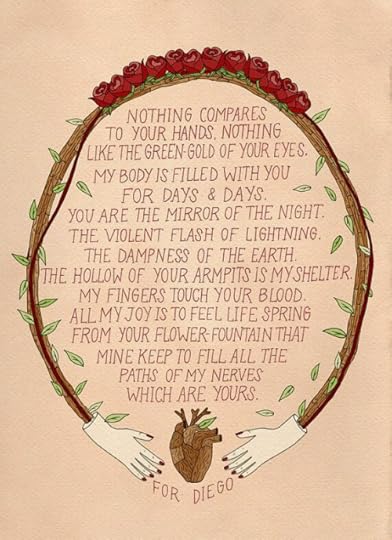 NOTHING COMPARES
TO YOUR HANDS, NOTHING
LIKE THE GREEN-GOLD OF YOUR EYES.
MY BODY IS FILLED WITH YOU
FOR DAYS & DAYS.
YOU ARE THE MIRROR OF THE NIGHT.
THE VIOLENT FLASH OF LIGHTNING.
THE DAMPNESS OF THE EARTH.
THE HOLLOW OF YOUR ARMPITS IS MY SHELTER.
MY FINGERS TOUCH YOUR BLOOD.
ALL MY JOY IS TO FEEL LIFE SPRING
FROM YOUR FLOWER-FOUNTAIN THAT
MINE KEEP TO FILL ALL THE
PATHS OF MY NERVES
WHICH ARE YOURS.
FOR DIEGO